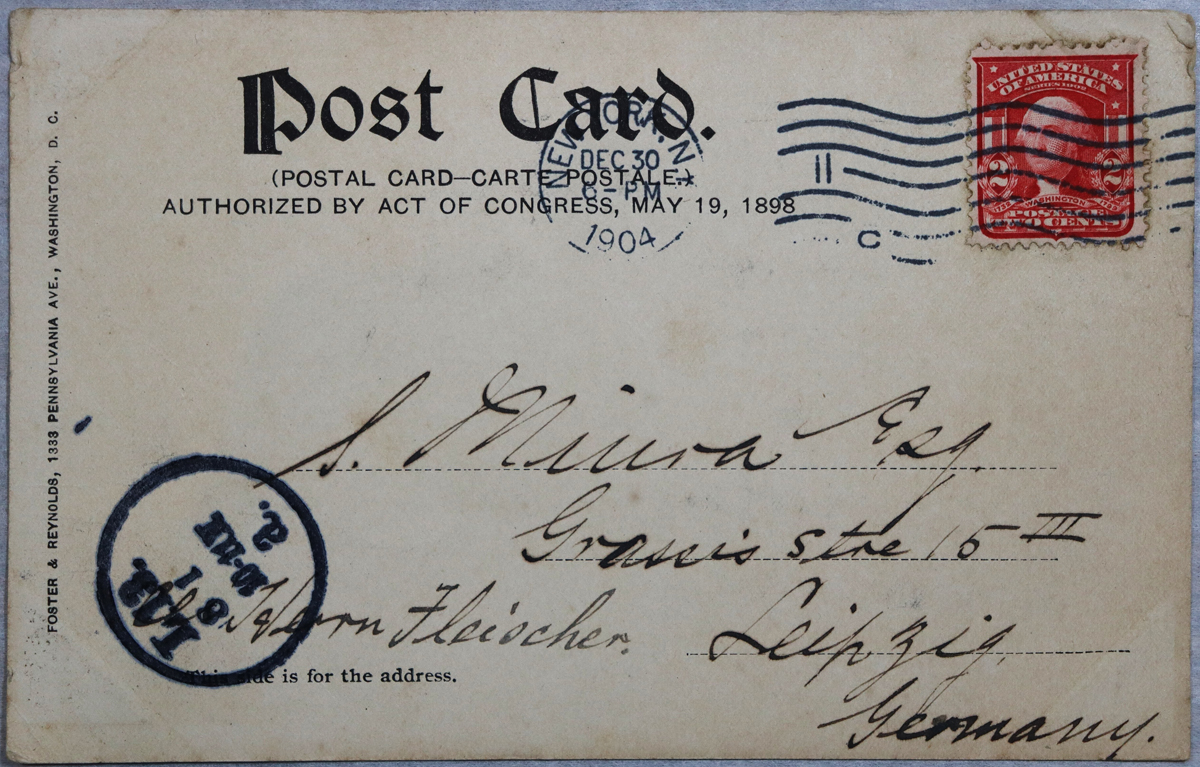 Post Card.
(POSTAL CARD—CARTE POSTALE.)
AUTHORIZED BY ACT OF CONGRESS, MAY 19, 1898
NEW YORK, N
DEC 30
6-PM
1904
11
C
UNITED STATES
OF AMERICA
SERIES 1902
2 2
1732 WASHINGTON 1799
POSTAGE
TWO CENTS
FOSTER & REYNOLDS, 1333 PENNSYLVANIA AVE., WASHINGTON, D. C.
S. Miura Esq.
Grassis stre 15 III
Herrn Fleischer.
Leipzig,
Germany.
8 1
a.
This side is for the address.